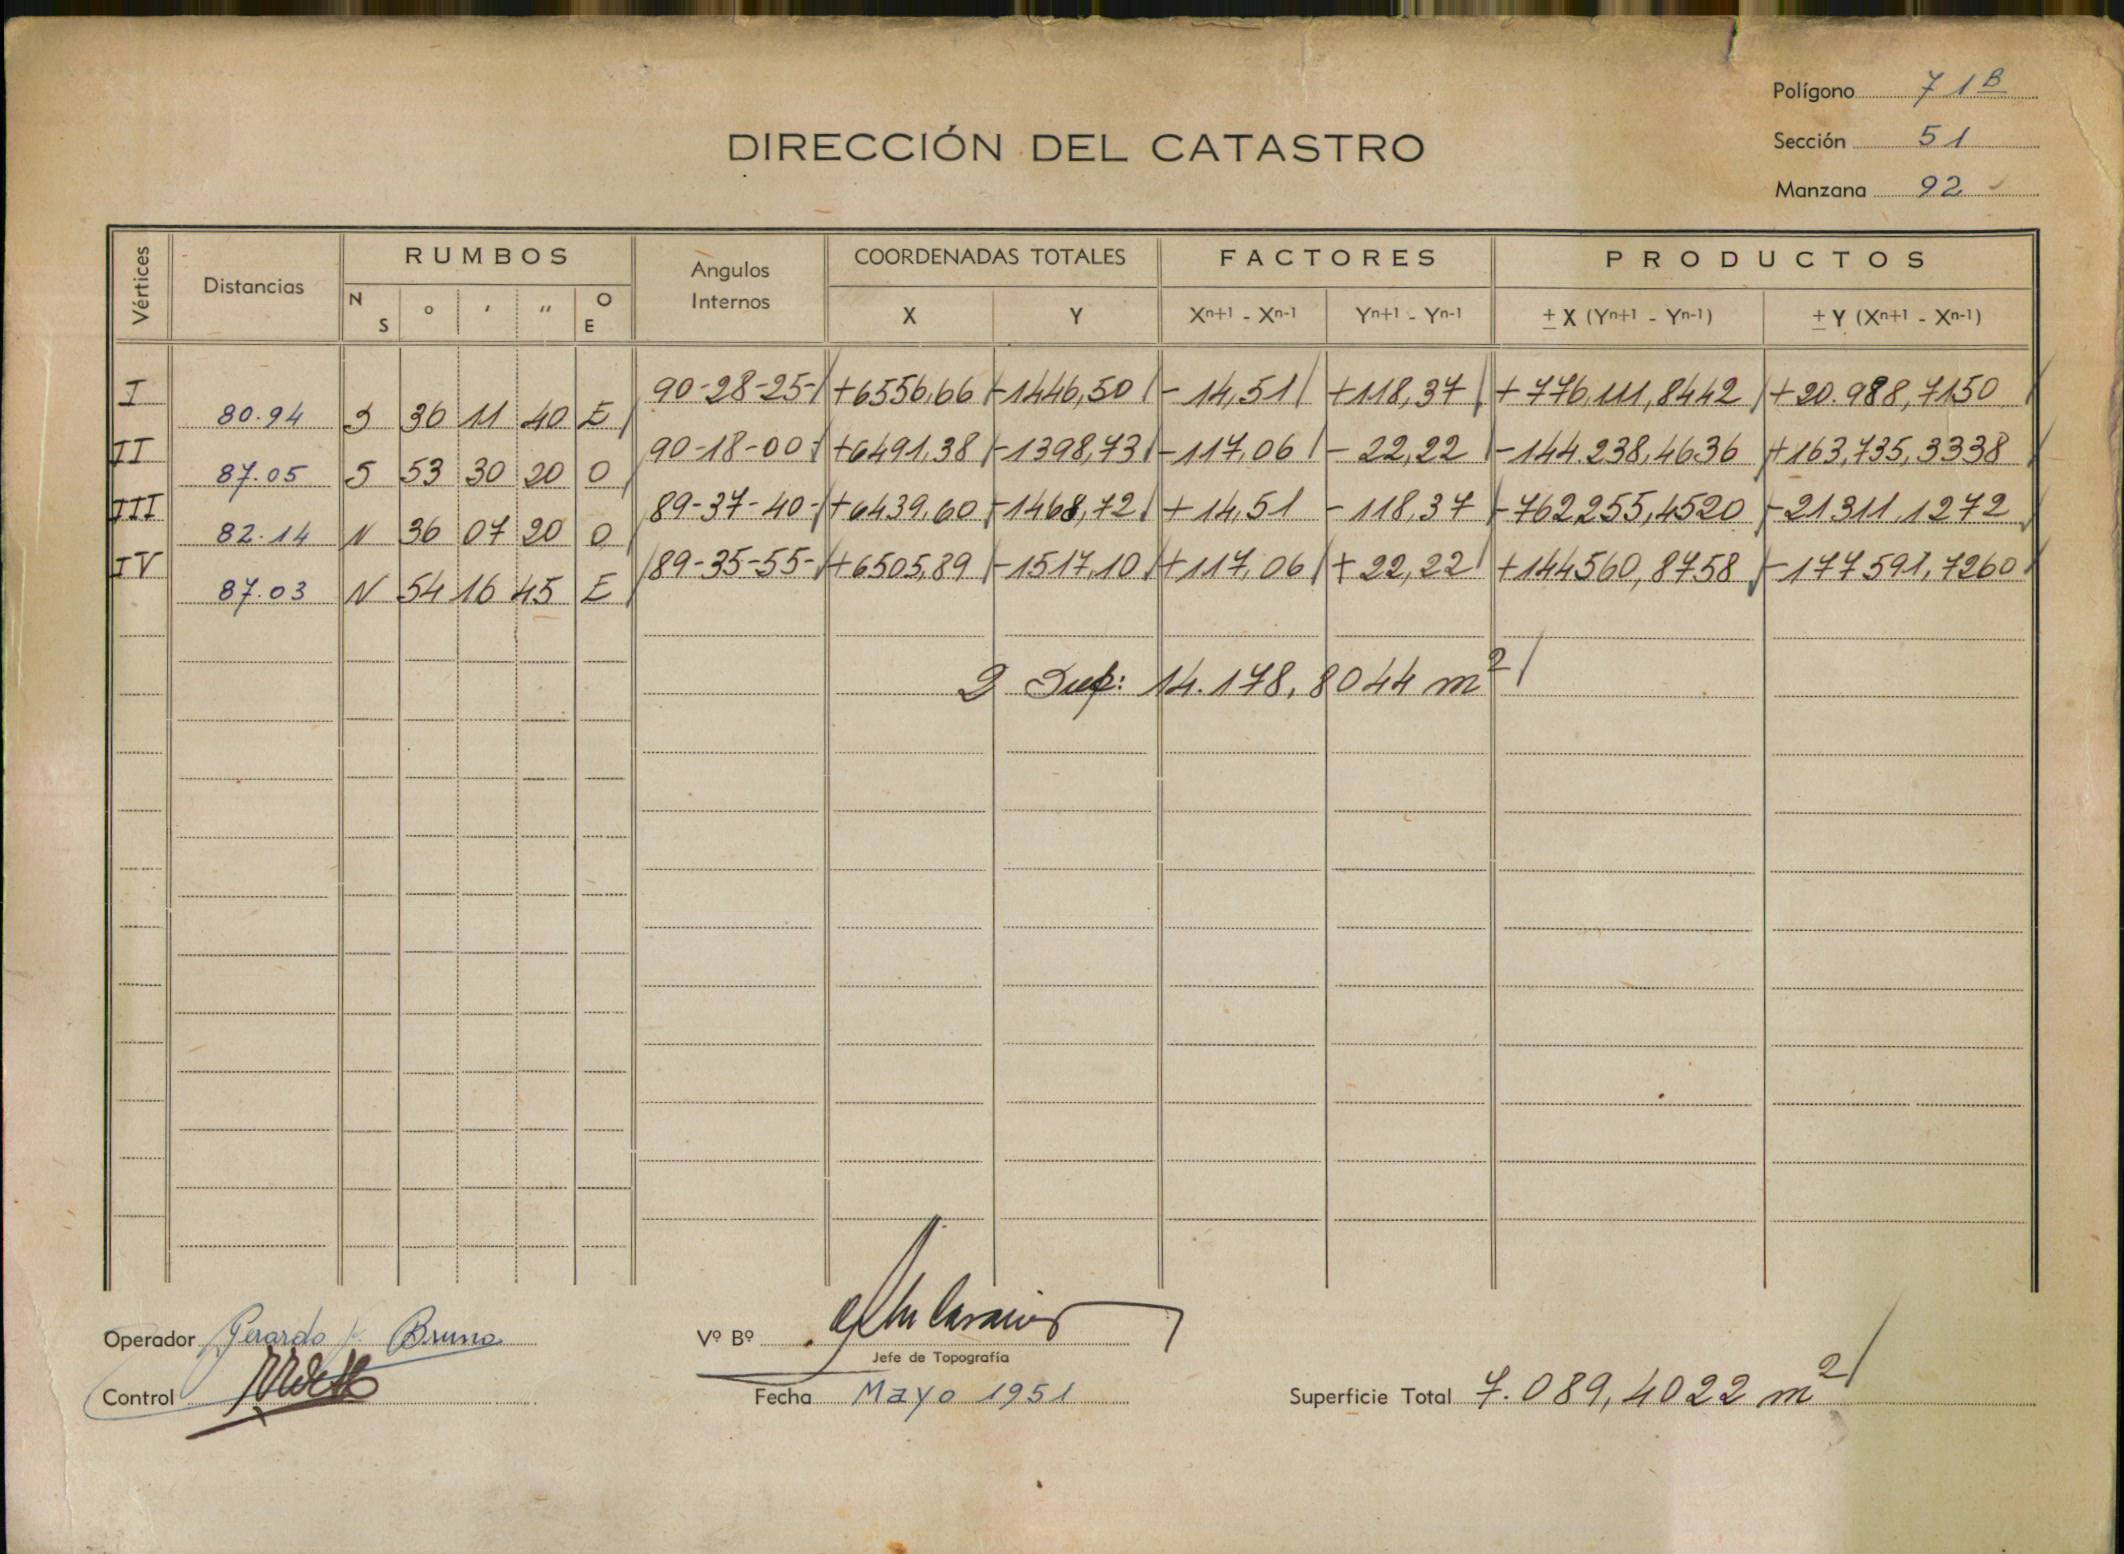 Polígono 71B
DIRECCIÓN DEL CATASTRO
Sección 51
Manzana 92
Vértices Distancias RUMBOS Angulos Internos COORDENADAS TOTALES FACTORES PRODUCTOS
N S ° ' " O E X Y Xn+1 - Xn-1 Yn+1 - Yn-1 ± X (Yn+1 - Yn-1) ± Y (Xn+1 - Xn-1)
I 90-28-25- +6556,66 -1446,50 - 14,51 +118,37 +776,111,8442 +20.988,7150
80.94 S 36 11 40 E
II 90-18-00- +6491,38 -1398,73 -117,06 - 22,22 -144.238,4636 +163,735,3338
87.05 S 53 30 20 O
III 89-37-40- +6439,60 -1468,72 +14,51 -118,37 -762,255,4520 -21311,1272
82.14 N 36 07 20 O
IV 89-35-55- +6505,89 -1517,10 +117,06 +22,22 +144560,8758 -177591,7260
87.03 N 54 16 45 E
2 Sup: 14.178,8044 m2
Operador Gerardo Bruno
Vº Bº
Jefe de Topografía
Control
Fecha Mayo 1951
Superficie Total 7.089,4022 m2